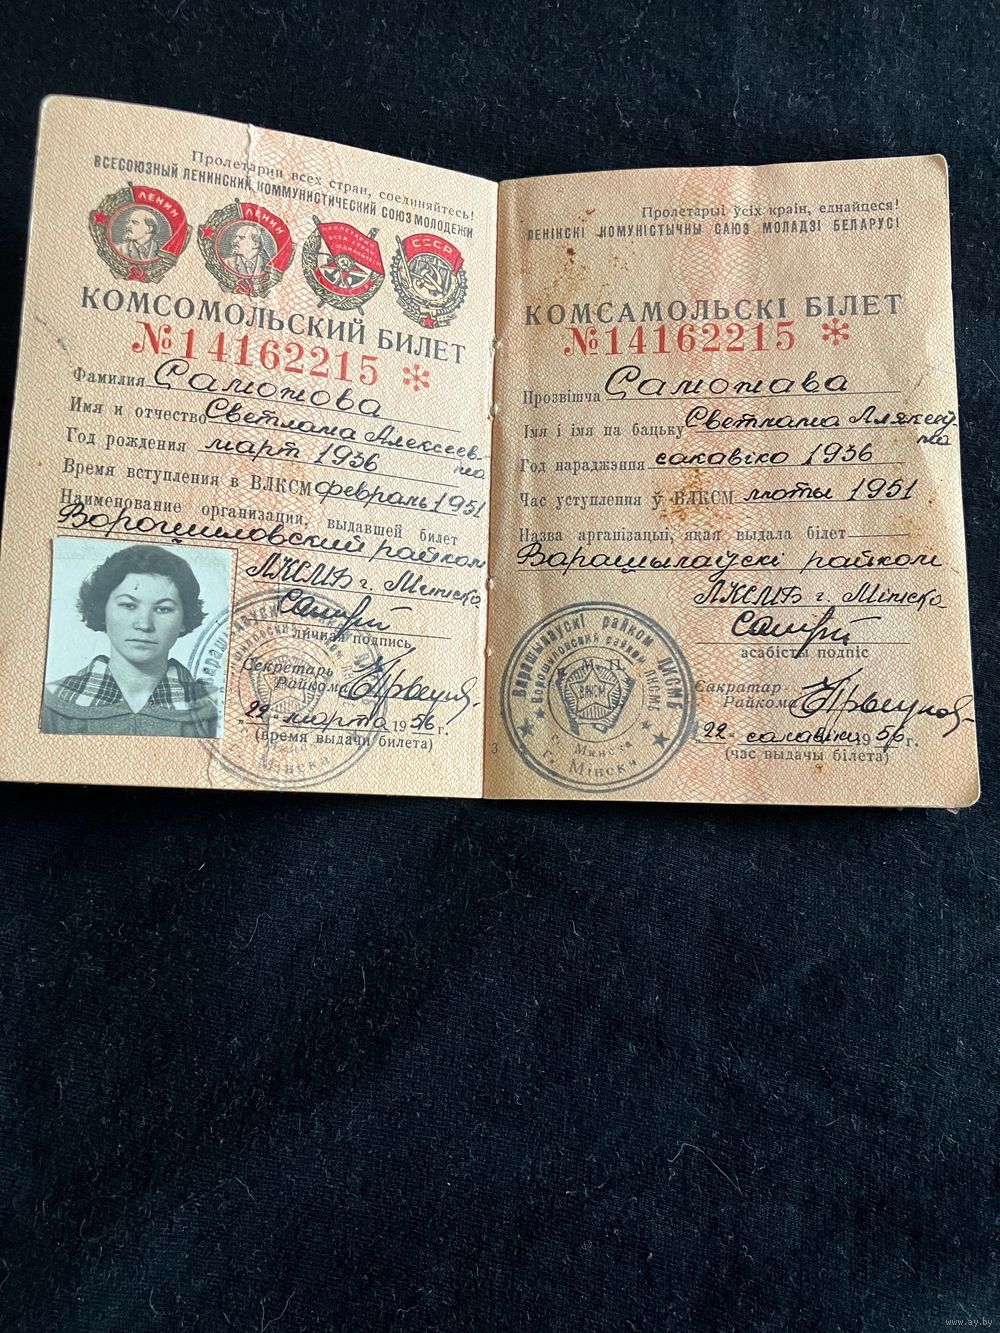 Пролетарии всех стран, соединяйтесь!
ВСЕСОЮЗНЫЙ ЛЕНИНСКИЙ КОММУНИСТИЧЕСКИЙ СОЮЗ МОЛОДЕЖИ
ЛЕНИН
ЛЕНИН
ПРОЛЕТАРИИ ВСЕХ СТРАН, СОЕДИНЯЙТЕСЬ
СССР
КОМСОМОЛЬСКИЙ БИЛЕТ
№14162215 *
Фамилия Самохова
Имя и отчество Светлана Алексеев-
на
Год рождения март 1936
Время вступления в ВЛКСМ февраль 1951
Наименование организации, выдавшей билет
Ворошиловский райком
ЛКСМБ г. Минска
личная подпись
Секретарь
Райкома
"22" марта 1956 г.
(время выдачи билета)
Пролетарыі ўсіх краін, еднайцеся!
ЛЕНІНСКІ КОМУНІСТЫЧНЫ САЮЗ МОЛАДЗІ БЕЛАРУСІ
КОМСАМОЛЬСКІ БІЛЕТ
№14162215 *
Прозвішча Самохава
Імя і імя па бацьку Светлана Аляксеў
на
Год нараджэння сакавіка 1936
Час уступлення ў ВЛКСМ люты 1951
Назва арганізацыі, якая выдала білет
Варашылаўскі райком
ЛКСМБ г. Мінска
асабісты подпіс
Сакратар
Райкома
"22" сакавіка 1956 г.
(час выдачы білета)
Варашылаўскі райком ЛКСМБ
Ворошиловский райком ЛКСМБ
ВЛКСМ
г. Минска
г. Мінска
3
www.ay.by